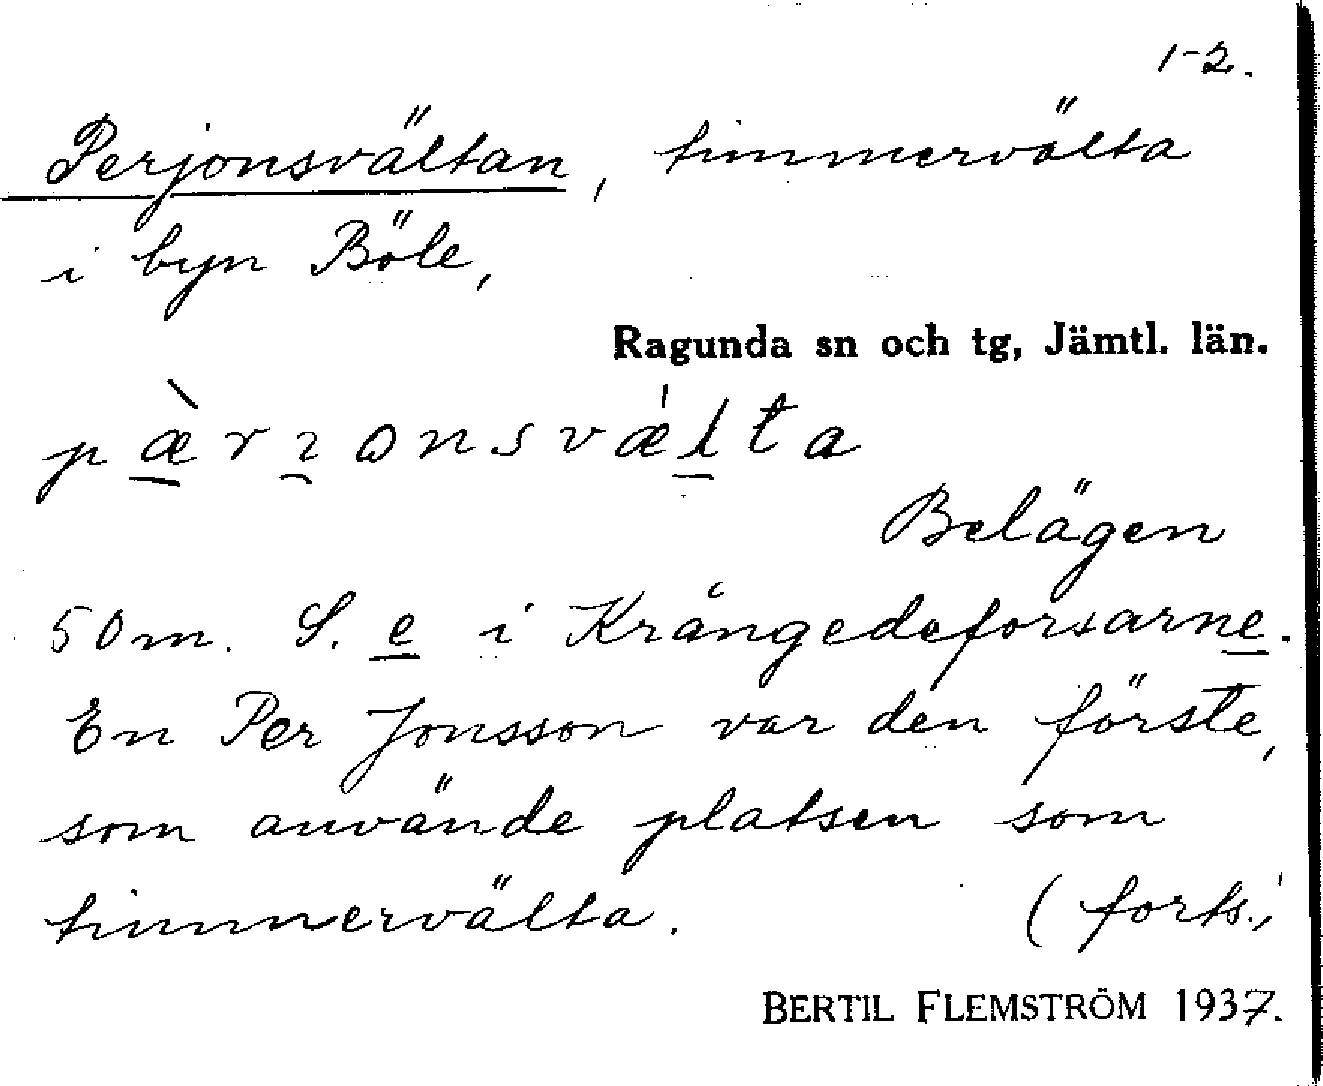 1-2.
Perjonsvältan, timmervälta
i byn Böle,
Ragunda sn och tg, Jämtl. län.
Belägen
50 m. S. e i Krångedeforsarne.
En Per Jonsson var den förste,
som använde platsen som
timmervälta. (forts.)
BERTIL FLEMSTRÖM 1937.